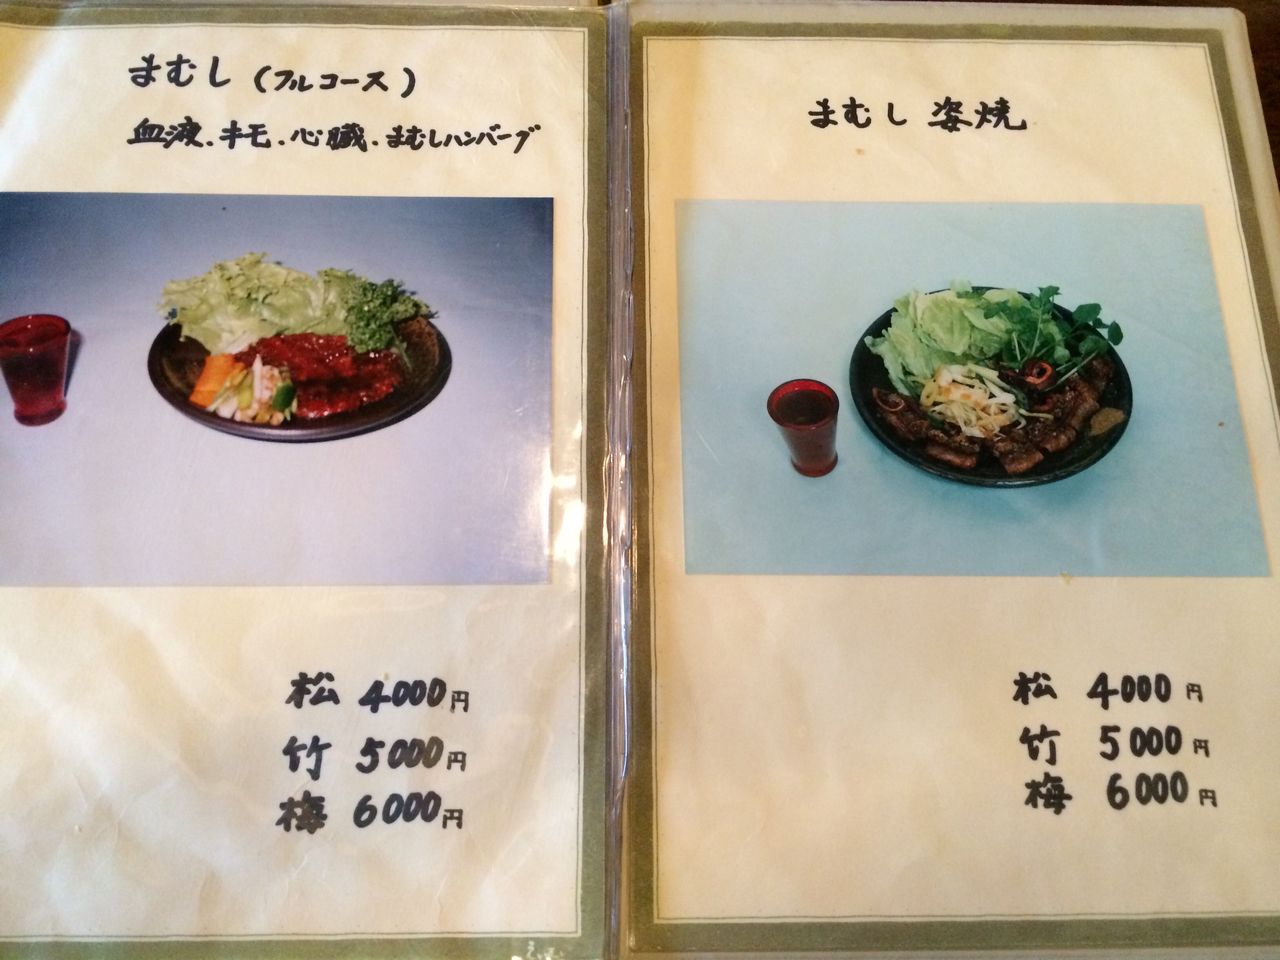 まむし (フルコース)
血液.キモ.心臓.まむしハンバーグ
松 4000円
竹 5000円
梅 6000円
まむし 姿焼
松 4000円
竹 5000円
梅 6000円